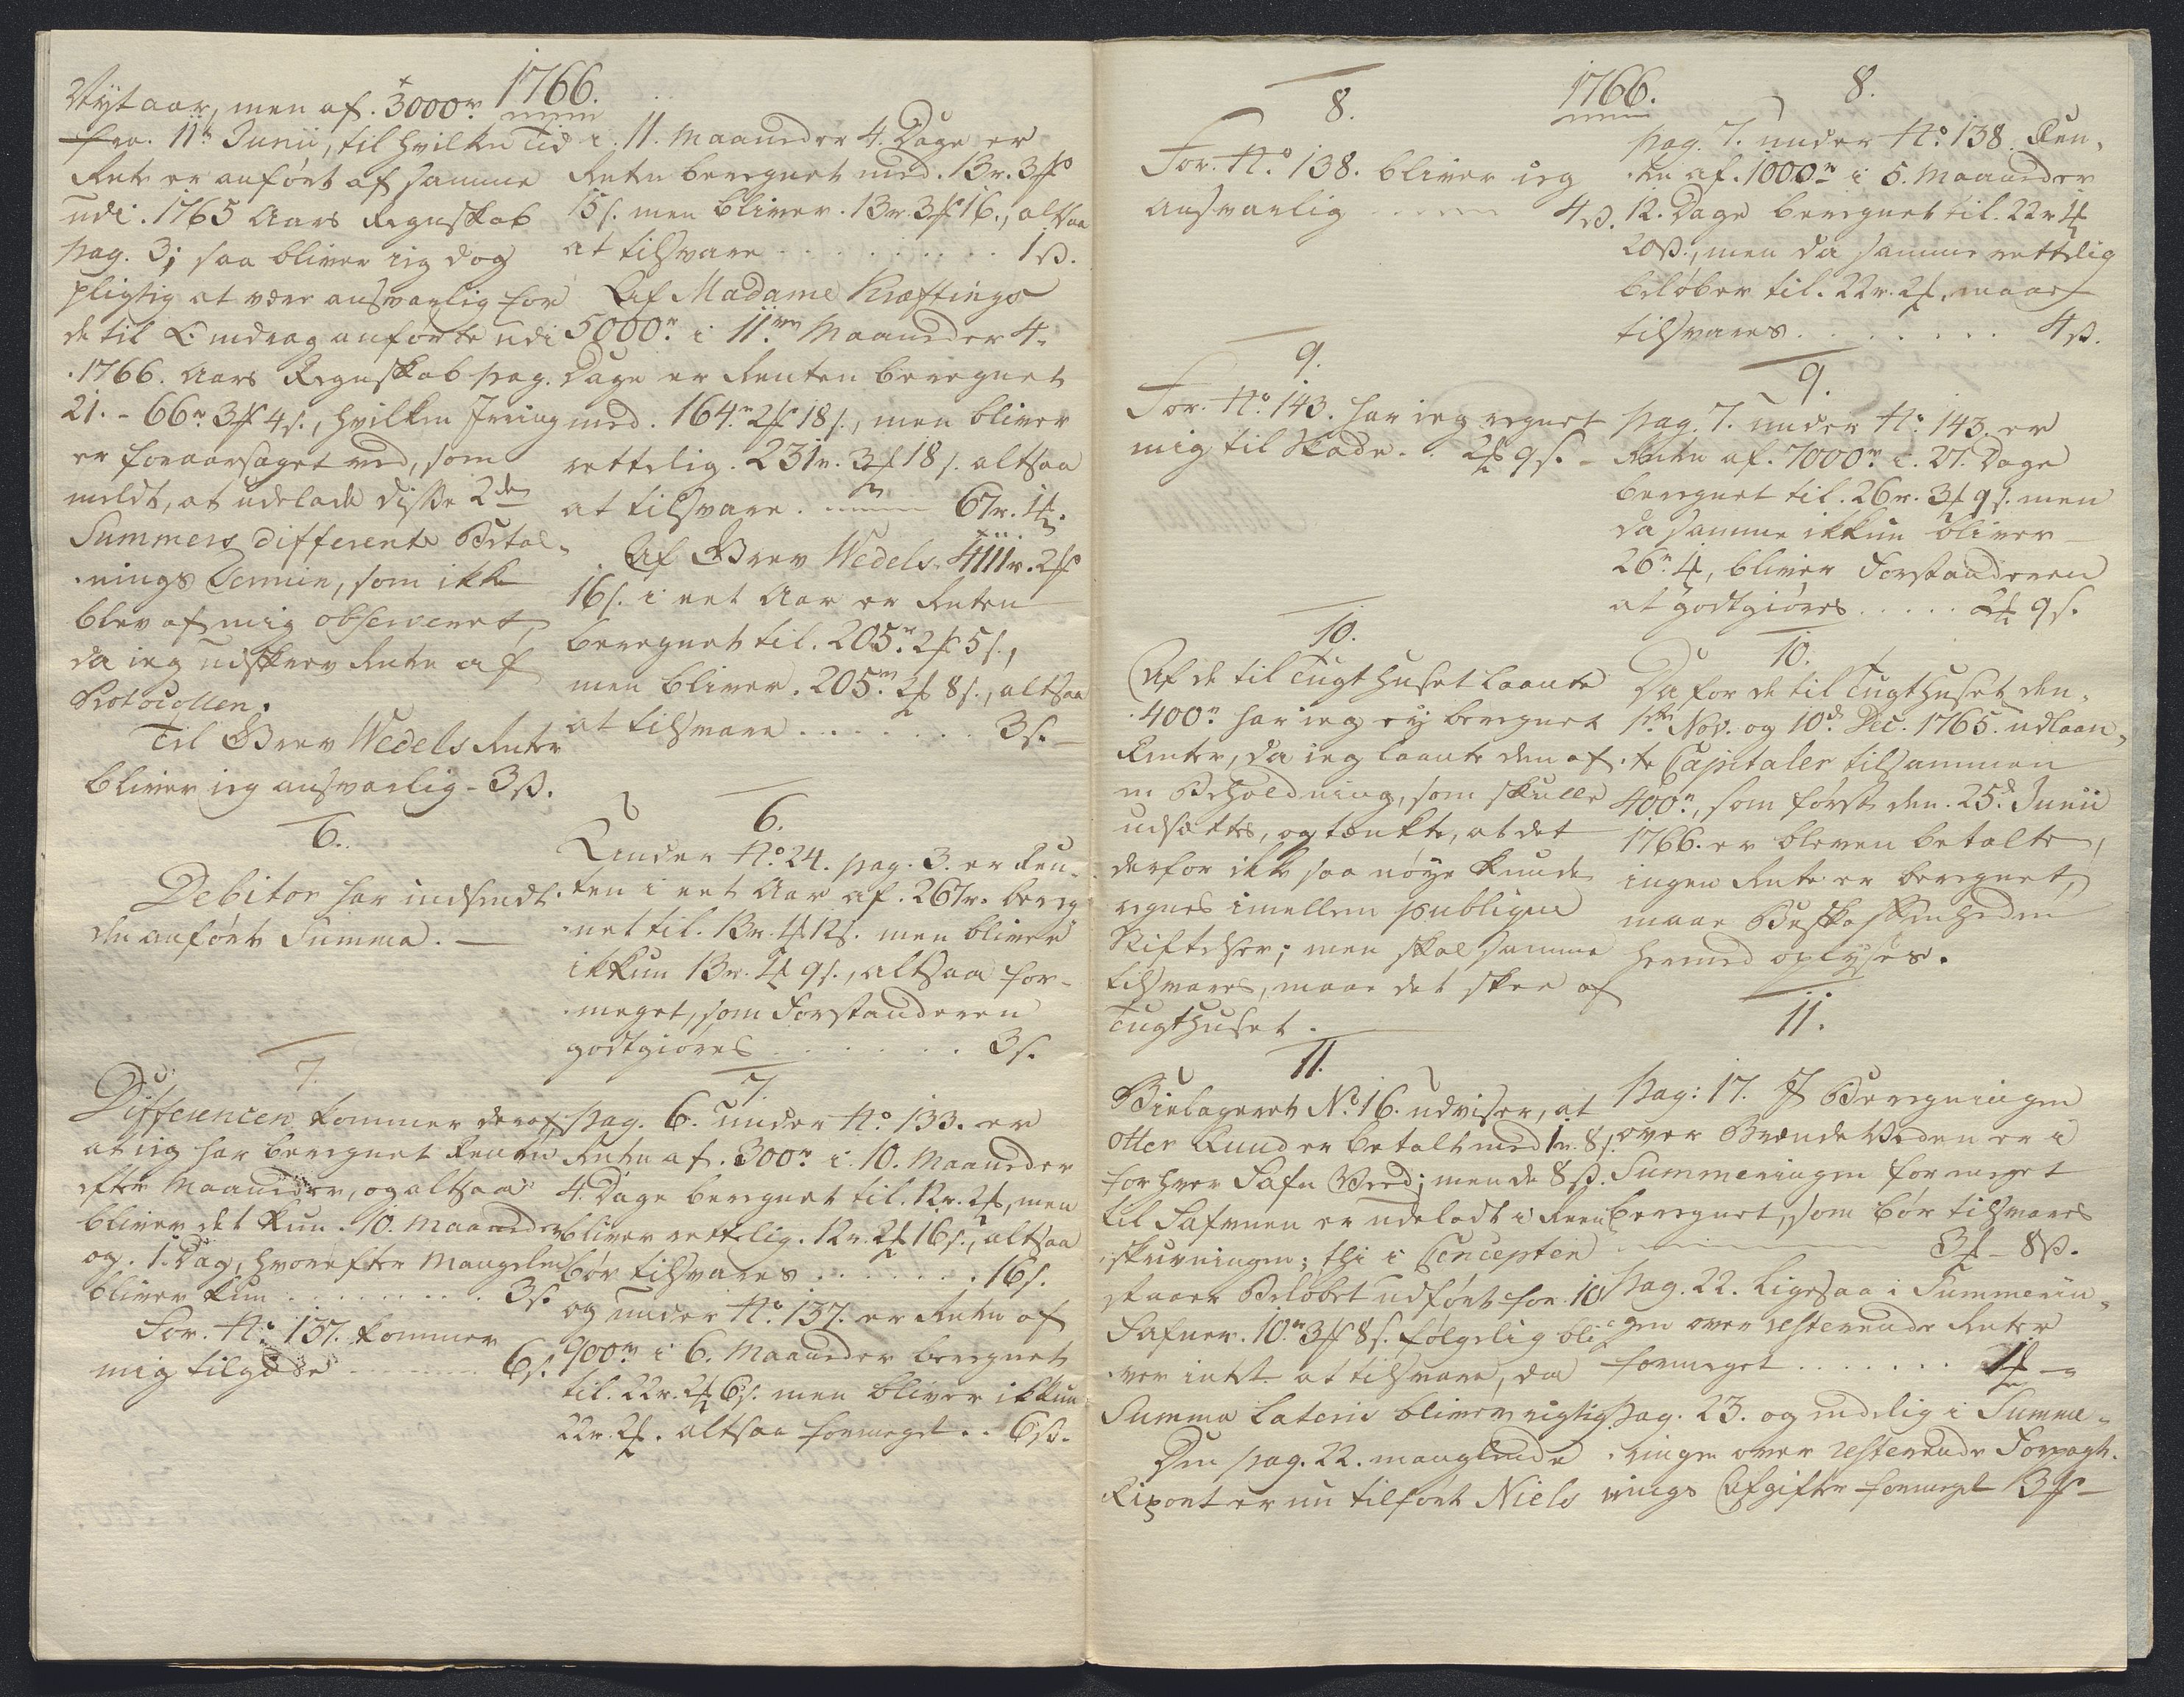 1766.
Nytaar, men af 3000r
fra 11te Junii, til hvilken Tid
Rente er anført af samme
udi 1765 Aars Regnskab
pag. 3; saa bliver ieg dog
pligtig at være ansvarlig for
de til Indtag anførte udi
1766. Aars Regnskab pag.
21. - 66r 3f 4s., hvilken Irring
er foraarsaget ved, som
meldt, at udelade disse 2de
Summers differente Betal-
nings Termin, som ikke
blev af mig observeret,
da ieg udskrev Rente af
Protocollen.
Til Grev Wedels Rente
bliver ieg ansvarlig - 3s.
6.
Debitor har indsendt
den anførte Summa.
7.
Differencen kommer deraf
at ieg har beregnet Renten
efter Maaneder, og altsaa
bliver det kun 10. Maaneder
og 1. Dag, hvorefter Mangelen
bliver kun . . . 3s.
For No 137. kommer
mig tilgode . . . 6s.
i 11. Maaneder 4. Dage er
Renten beregnet med 13r. 3f
15s. men bliver 13r 3f 16., altsaa
at tilsvare . . . 1s.
Af Madame Kræftings
5000r i 11. Maaneder 4.
Dage er Renten beregnet
med 164r 2f 18s., men bliver
rettelig 231r. 3f 18s. altsaa
at tilsvare . . . 67r. 1f.
Af Grev Wedels 4111r. 2f
16s. i eet Aar er Renten
beregnet til 205r 2f 5s.,
men bliver 205r 2f 8s., altsaa
at tilsvare . . . 3s.
6.
Under No 24. pag. 3. er Ren-
ten i eet Aar af 267r. bereg-
net til 13r. 1f 12s. men bliver
ikkun 13r. 1f 9s., altsaa for-
meget, som Forstanderen
godtgiøres . . . 3s.
7.
Pag. 6. under No 133. er
Rente af 300r i 10. Maaneder
4. Dage beregnet til 12r. 2f, men
bliver rettelig 12r. 2f 16s., altsaa
bør tilsvares . . . 16s.
og under No 137. er Rente af
900r i 6. Maaneder beregnet
til 22r. 2f 6s. men bliver ikkun
22r. 2f. altsaa formeget . . 6s.
1766.
8.
For No 138. bliver ieg
ansvarlig . . . 4s.
9.
For No 143. har ieg regnet
mig til Skade . . 2f 9s.
10.
Af de til Tugthuset laante
400r har ieg ey beregnet
Renter, da ieg laante den af
en Beholdning, som skulle
udsættes, og tænkte, at det
derfor ikke saa nøye kunde
regnes imellem publique
Stiftelser; men skal samme
tilsvares, maae det skee af
Tugthuset.
11.
Bielageret No 16. udviser, at
Otter Lund er betalt med 1r. 8s.
for hver Fafn Veed; men de 8s.
til Fafnen er udeladt i Reen-
skrivningen; thi i Concepten
staaer Beløbet udført for 10
Fafner. 10r 3f 8s. følgelig bli-
ver intet at tilsvare, da
Summa Lateris bliver rigtig.
Den pag. 22. manglende
Rixort er nu tilført Niels
8.
pag. 7. under No 138. Ren-
ten af 1000r i 5. Maaneder
12. Dage beregnet til 22r 1f
20s., men da samme rettelig
beløber til 22r. 2f, maae
tilsvares . . . 4s.
9.
pag. 7. under No 143. er
Rente af 7000r i 27. Dage
beregnet til 26r. 3f 9s. men
da samme ikkun bliver
26r 1f, bliver Forstanderen
at godtgiøres . . . 2f 9s.
10.
Da for de til Tugthuset den
1ste Nov. og 10de Dec. 1765. udlaan-
te Capitaler tilsammen
400r, som først den 25de Junii
1766. er bleven betalte,
ingen Rente er beregnet,
maae Beskaffenheden
hermed oplyses.
11.
Pag: 17. I Beregningen
over Brænde Veden er i
Summeringen formeget
beregnet, som bør tilsvares
. . . 3f - 8s.
Pag. 22. Ligesaa i Summerin-
gen over resterende Renter
formeget . . . 1f -
Pag. 23. og endelig i Summe-
ringen over resterende Forpagt-
nings Afgifter formeget 3f -